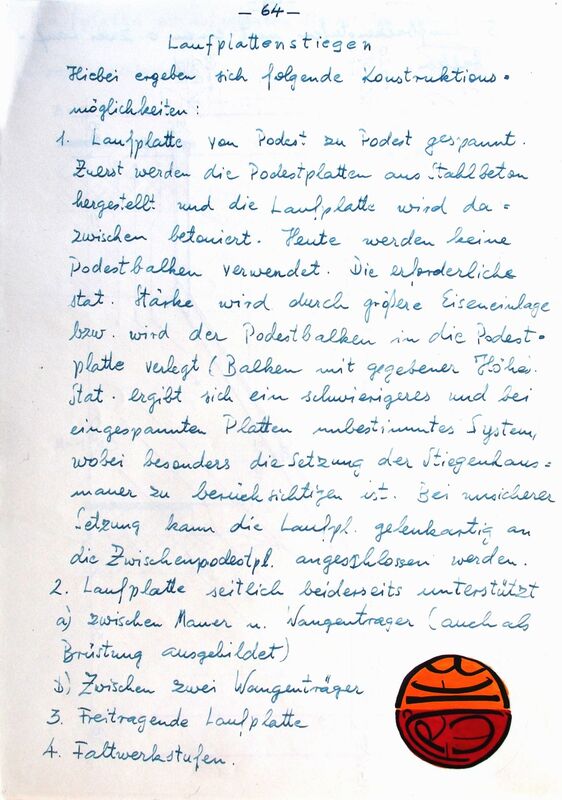 – 64 –
Laufplattenstiegen
Hiebei ergeben sich folgende Konstruktions-
möglichkeiten:
1. Laufplatte von Podest zu Podest gespannt.
Zuerst werden die Podestplatten aus Stahlbeton
hergestellt und die Laufplatte wird da=
zwischen betoniert. Heute werden keine
Podestbalken verwendet. Die erforderliche
stat. Stärke wird durch größere Eiseneinlage
bzw. wird der Podestbalken in die Podest-
platte verlegt (Balken mit gegebener Höhe).
Stat. ergibt sich ein schwierigeres und bei
eingespannten Platten unbestimmtes System,
wobei besonders die Setzung der Stiegenhaus=
mauer zu berücksichtigen ist. Bei unsicherer
Setzung kann die Laufpl. gelenkartig an
die Zwischenpodestpl. angeschlossen werden.
2. Laufplatte seitlich beiderseits unterstützt
a) zwischen Mauer u. Wangenträger (auch als
Brüstung ausgebildet)
b) Zwischen zwei Wangenträger
3. Freitragende Laufplatte
4. Faltwerkstufen.